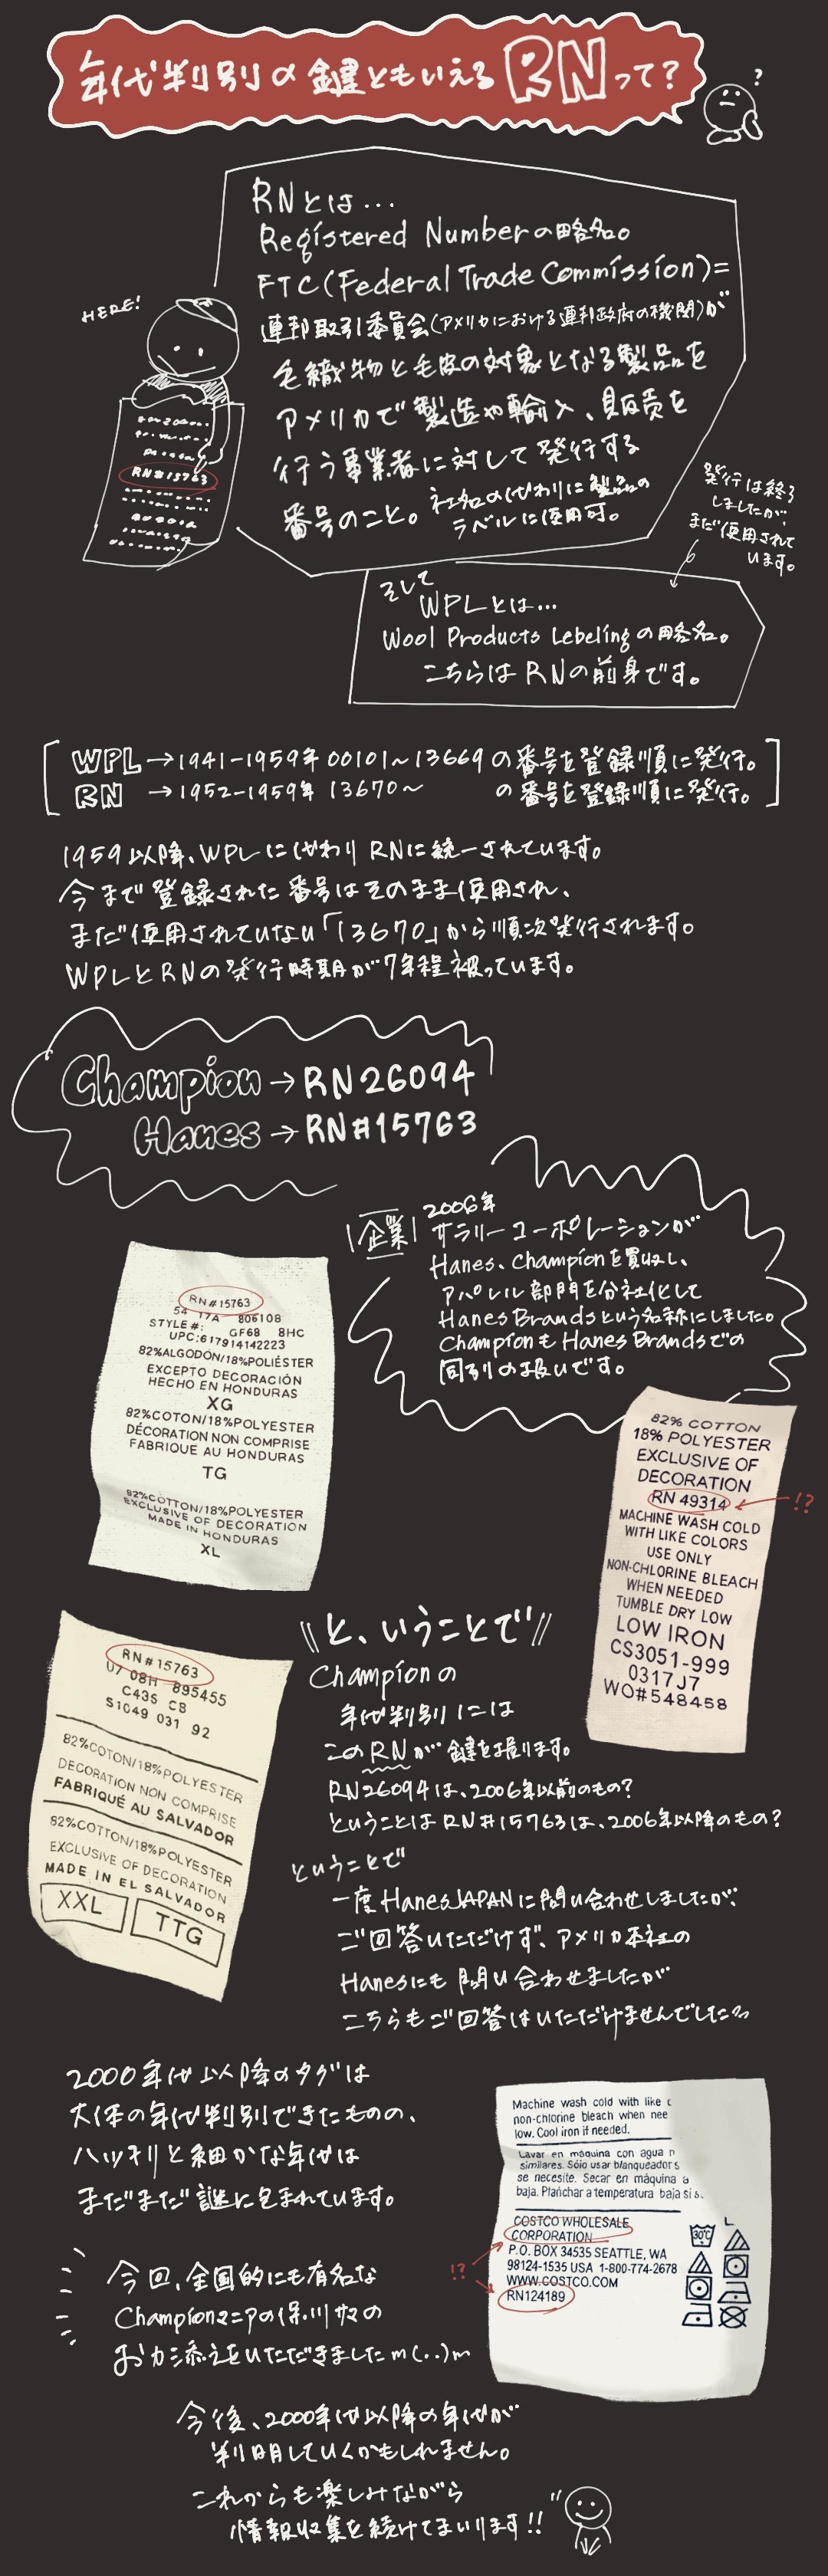 年代判別の鍵ともいえるRNって？
?
RNとは...
Registered Numberの略名。
FTC(Federal Trade Commission)=
連邦取引委員会(アメリカにおける連邦政府の機関)が
毛織物と毛皮の対象となる製品を
アメリカで製造や輸入、販売を
行う事業者に対して発行する
番号のこと。社名の代わりに製品の
ラベルに使用可。
HERE!
RN#15763
発行は終了
しましたが、
まだ使用されて
います。
そして
WPLとは...
Wool Products Lebelingの略名。
こちらはRNの前身です。
WPL→1941-1959年 00101～13669の番号を登録順に発行。
RN→1952-1959年 13670～の番号を登録順に発行。
1959以降、WPLに代わりRNに統一されています。
今まで登録された番号はそのまま使用され、
まだ使用されていない「13670」から順次発行されます。
WPLとRNの発行時期が7年程被っています。
Champion→RN26094
Hanes→RN#15763
企業
2006年
サラリーコーポレーションが
Hanes、Championを買収し、
アパレル部門を分社化して
HanesBrandsという名称にしました。
ChampionもHanesBrandsでの
同列の扱いです。
RN#15763
54 17A 806108
STYLE#: GF68 8HC
UPC:617914142223
82%ALGODÓN/18%POLIÉSTER
EXCEPTO DECORACIÓN
HECHO EN HONDURAS
XG
82%COTON/18%POLYESTER
DÉCORATION NON COMPRISE
FABRIQUE AU HONDURAS
TG
82%COTTON/18%POLYESTER
EXCLUSIVE OF DECORATION
MADE IN HONDURAS
XL
82% COTTON
18% POLYESTER
EXCLUSIVE OF
DECORATION
RN 49314
!?
MACHINE WASH COLD
WITH LIKE COLORS
USE ONLY
NON-CHLORINE BLEACH
WHEN NEEDED
TUMBLE DRY LOW
LOW IRON
CS3051-999
0317J7
WO#548458
RN#15763
U7 08H 895455
C436 CB
S1049 031 92
82%COTON/18%POLYESTER
DECORATION NON COMPRISE
FABRIQUÉ AU SALVADOR
82%COTTON/18%POLYESTER
EXCLUSIVE OF DECORATION
MADE IN EL SALVADOR
XXL TTG
と、いうことで
Championの
年代判別には
このRNが鍵を握ります。
RN26094は、2006年以前のもの？
ということはRN#15763は、2006年以降のもの？
ということで
一度HanesJAPANに問い合わせしましたが、
ご回答いただけず、アメリカ本社の
Hanesにも問い合わせましたが
こちらもご回答はいただけませんでした
2000年代以降のタグは
大体の年代判別できたものの、
ハッキリと細かな年代は
まだまだ謎に包まれています。
Machine wash cold with like c
non-chlorine bleach when nee
low. Cool iron if needed.
Lavar en máquina con agua n
similares. Sólo usar blanqueador s
se necesite. Secar en máquina a
baja. Planchar a temperatura baja si s.
COSTCO WHOLESALE
CORPORATION
P.O. BOX 34535 SEATTLE, WA
98124-1535 USA 1-800-774-2678
WWW.COSTCO.COM
RN124189
30°C
L
!?
今回、全国的にも有名な
Championマニアの保川サマの
お力添えをいただきましたm(..)m
今後、2000年代以降の年代が
判明していくかもしれません。
これからも楽しみながら
情報収集を続けてまいります!!